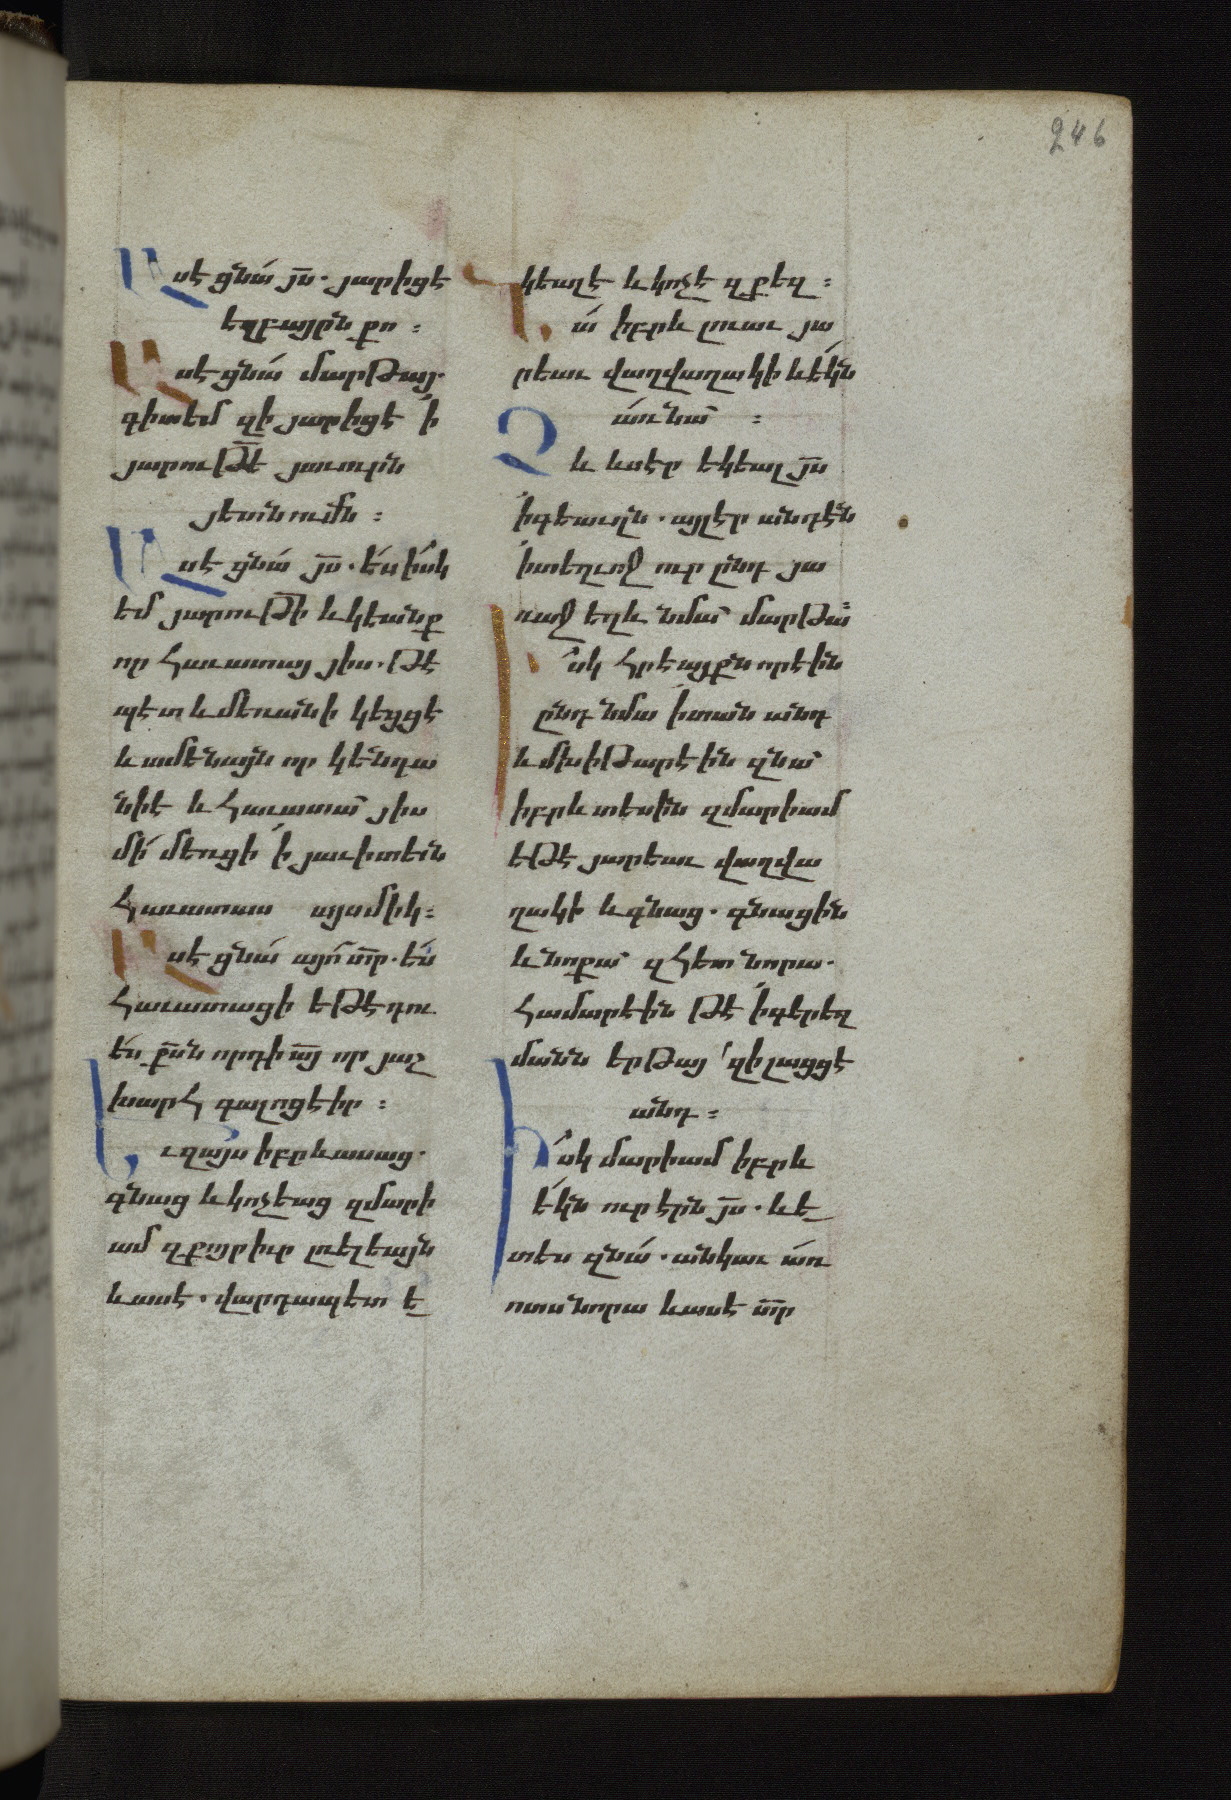 246
Ասէ ցնա՛ յս̅. յարիցէ
եղբայրն քո ։
Ասէ ցնա՛ մարթայ.
գիտեմ զի յարիցէ ՛ի
յարութե̅ յաւուրն
յետնումն ։
Ասէ ցնա՛ յս̅. ե՛ս ի՛սկ
եմ յարութի̅ և կեանք
որ հաւատայ յիս. թէ
պետ և մեռանի կեցցէ
և ամենայն որ կենդա
նիէ և հաւատա՛ յիս
մի՛ մեռցի ՛ի յաւիտեն
հաւատաս այսմիկ ։
Ասէ ցնա՛ այո՛ տր̅. ե՛ս
հաւատացի եթէ դու
ե՛ս քս̅ն որդի ա̅յ որ յաշ
խարհ գալոցէիր ։
Եւ զա՛յս իբրև ասաց.
գնաց և կոչեաց զմարի
ամ զքոյրիւր լռելեայն
և ասէ. վարդապետ ե
կեալէ և կոչէ զքեզ ։
Նա՛ իբրև լուաւ յա
րեաւ վաղվաղակի և եկն
ա՛ռ նա՛ ։
Չև ևսէր եկեալ յս̅
՛ի գեաւղն. այլէր անդէն
՛ի տեղւոջ ուր ընդ յա
ռաջ եղև նմա՛ մարթա ։
Իսկ հրեայքն որէին
ընդ նմա ՛ի տան անդ
և մխիթարէին զնա՛
իբրև տեսին զմարիամ
եթէ յարեաւ վաղվա
ղակի և գնաց. գնացին
և նոքա՛ զհետ նորա.
համարէին թէ ՛ի գերեզ
մանն երթայ՛ զի լացցէ
անդ ։
Իսկ մարիամ իբրև
ե՛կն ուր էրն յս̅. և ե
տես զնա՛. անկաւ ա՛ռ
ոտս նորա և ասէ տր̅